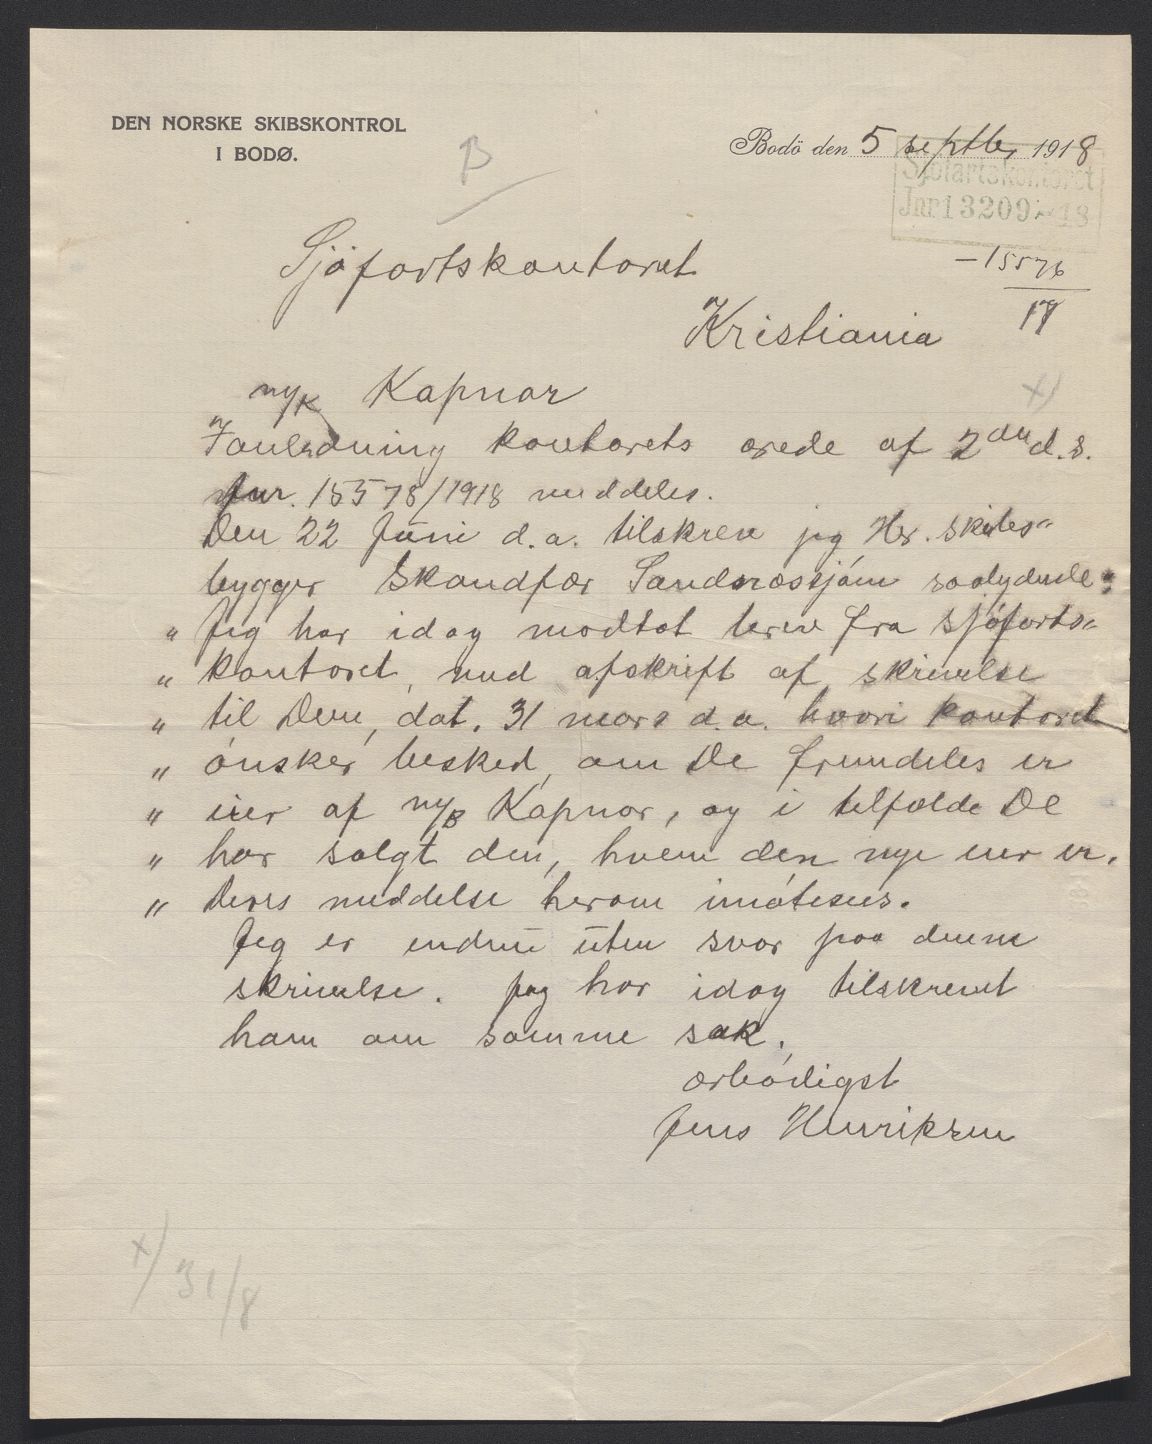 DEN NORSKE SKIBSKONTROL
I BODØ.
B
Bodö den 5 septbr 1918
Sjøfartskontoret
Jnr 13209 18
Sjöfartskontoret
- 15576
17
Kristiania
m/k Kapnor
X)
Ianledning kontorets ærede af 2den d.s.
Jnr. 15578/1918 meddeles.
Den 22 Juni d.a. tilskrev jeg Hr. skibs-
bygger Skandfær Sandnæssjöen saalydende:
" Jeg har idag modtat brev fra sjöfarts-
" kontoret, med afskrift af skrivelse
" til Dem, dat. 31 mars d.a. hvori kontoret
" önsker besked, om De fremdeles er
" eier af m/k Kapnor, og i tilfælde De
" har solgt den, hvem den nye eier er.
" Deres meddelse herom imötesees.
Jeg er endnu uten svar paa denne
skrivelse. Jeg har idag tilskrevet
ham om samme sak.
ærbödigst
Jens Henriksen
x) 31/8